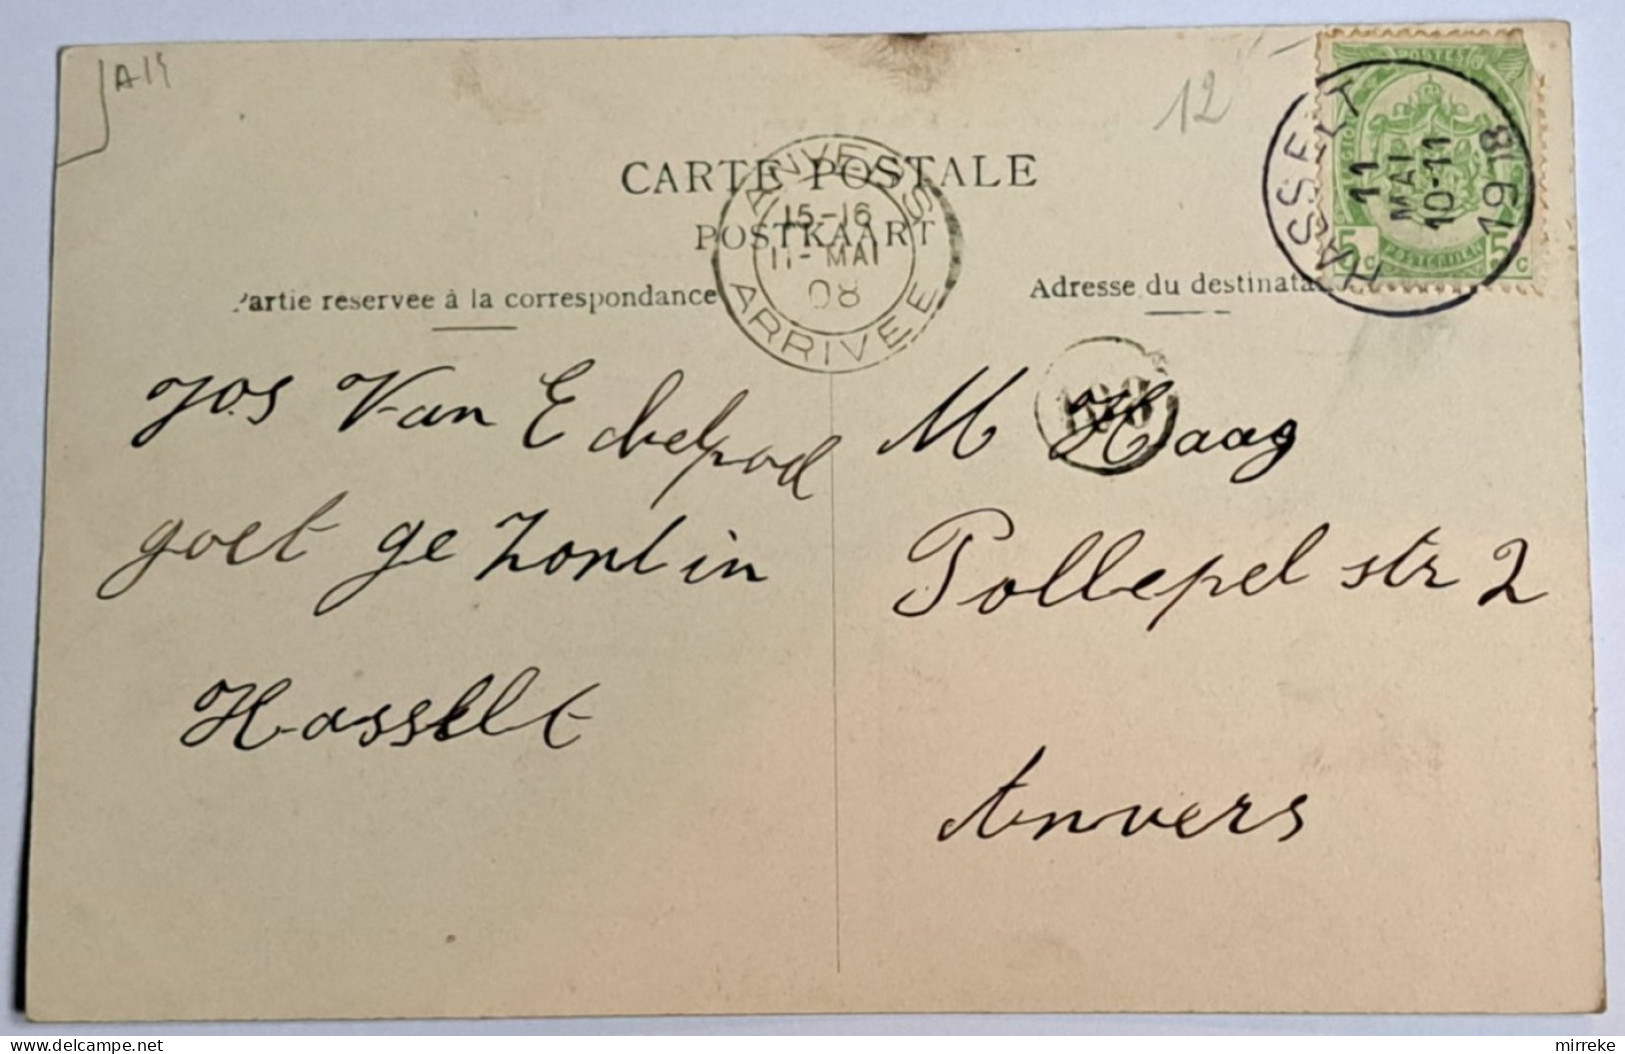 A14
12
CARTE POSTALE
POSTKAART
Partie réservée à la correspondance
Adresse du destinata
ANVERS
15-16
11-MAI
08
ARRIVEE
HASSELT
11
MAI
10-11
1908
POSTES
5c 5c
Jos Van Echelpoel
goet ge zont in
Hasselt
M Haag
Pollepel str 2
Anvers
mirreke